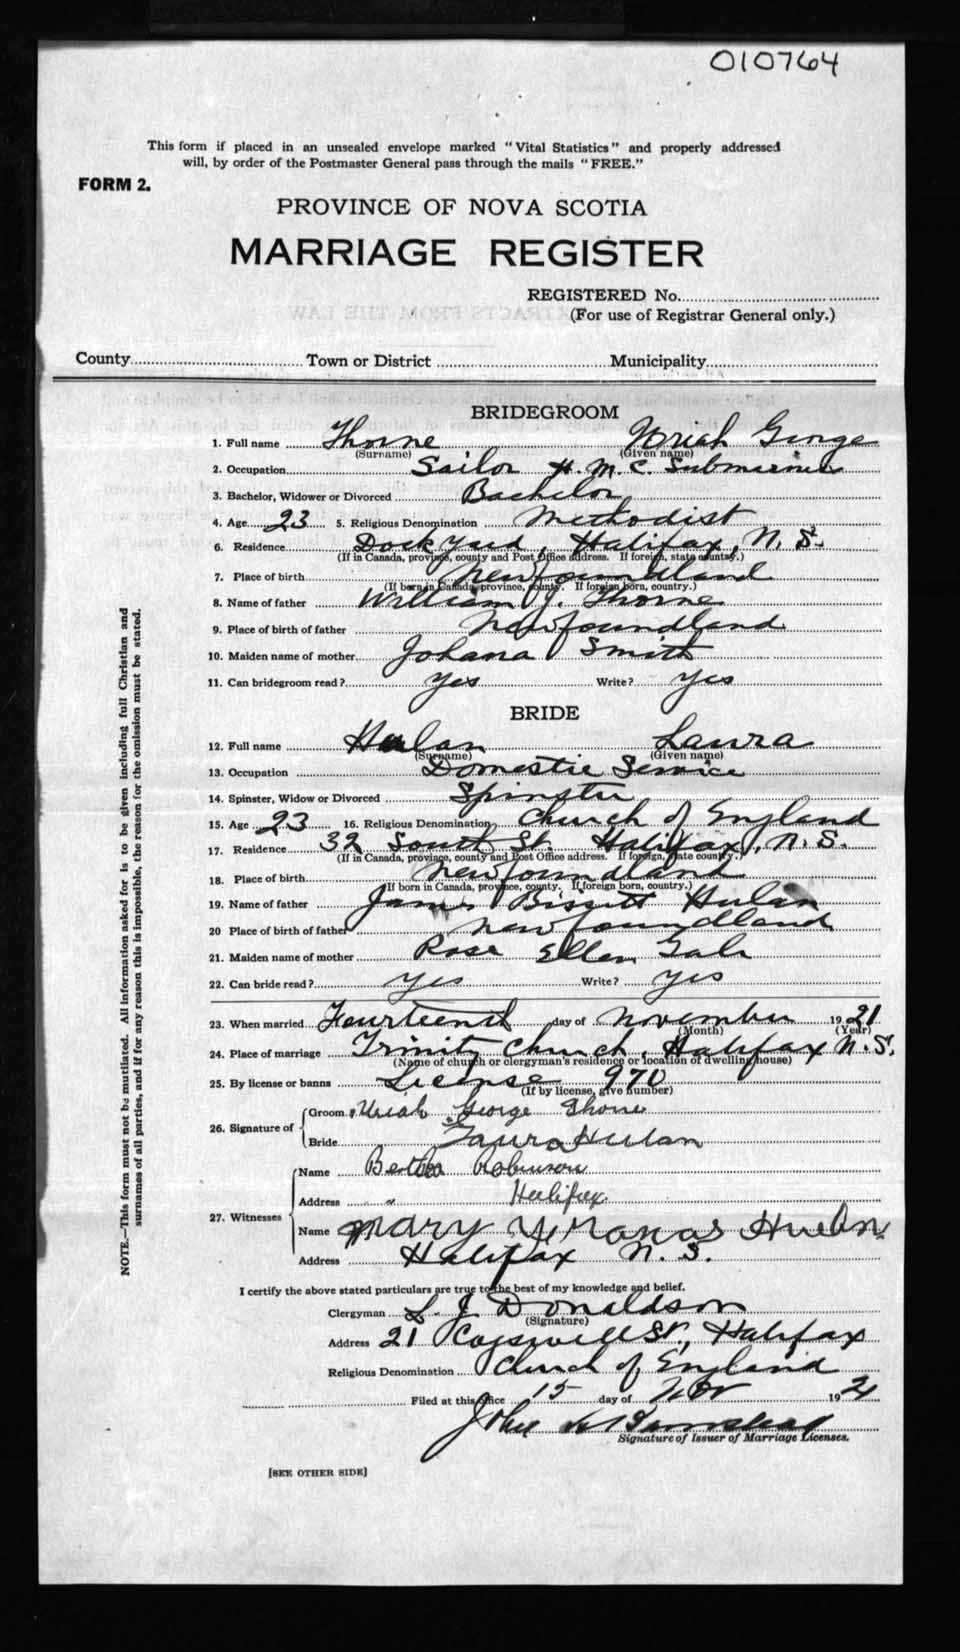 010764
This form if placed in an unsealed envelope marked "Vital Statistics" and properly addressed
will, by order of the Postmaster General pass through the mails "FREE."
FORM 2.
PROVINCE OF NOVA SCOTIA
MARRIAGE REGISTER
REGISTERED No.
(For use of Registrar General only.)
County Town or District Municipality
BRIDEGROOM
1. Full name Thorne Uriah George
(Surname) (Given name)
2. Occupation Sailor H. M. C. Submarines
3. Bachelor, Widower or Divorced Bachelor
4. Age 23 5. Religious Denomination Methodist
6. Residence Dockyard, Halifax, N. S.
(If in Canada, province, county and Post Office address. If foreign, state country.)
7. Place of birth Newfoundland
(If born in Canada, province, county. If foreign born, country.)
8. Name of father William J. Thorne
9. Place of birth of father Newfoundland
10. Maiden name of mother Johana Smith
11. Can bridegroom read? Yes Write? Yes
BRIDE
12. Full name Hulan Laura
(Surname) (Given name)
13. Occupation Domestic Service
14. Spinster, Widow or Divorced Spinster
15. Age 23 16. Religious Denomination Church of England
17. Residence 32 South St. Halifax, N. S.
(If in Canada, province, county and Post Office address. If foreign, state country.)
18. Place of birth Newfoundland
(If born in Canada, province, county. If foreign born, country.)
19. Name of father James Bissett Hulan
20 Place of birth of father Newfoundland
21. Maiden name of mother Rose Ellen Gale
22. Can bride read? Yes Write? Yes
23. When married Fourteenth day of November 1921
(Month) (Year)
24. Place of marriage Trinity Church, Halifax N. S.
(Name of church or clergyman's residence or location of dwelling house)
25. By license or banns License 970
(If by license, give number)
26. Signature of Groom Uriah George Thorne
Bride Laura Hulan
27. Witnesses Name Bertha Robinson
Address Halifax
Name Mary Hueln
Address Halifax N. S.
I certify the above stated particulars are true to the best of my knowledge and belief.
Clergyman L. J. Donaldson
(Signature)
Address 21 Cogswell St., Halifax
Religious Denomination Church of England
Filed at this office 15 day of Nov 1921
John
Signature of Issuer of Marriage Licenses.
[SEE OTHER SIDE]
NOTE.—This form must not be mutilated. All information asked for is to be given including full Christian and
surnames of all parties, and if for any reason this is impossible, the reason for the omission must be stated.